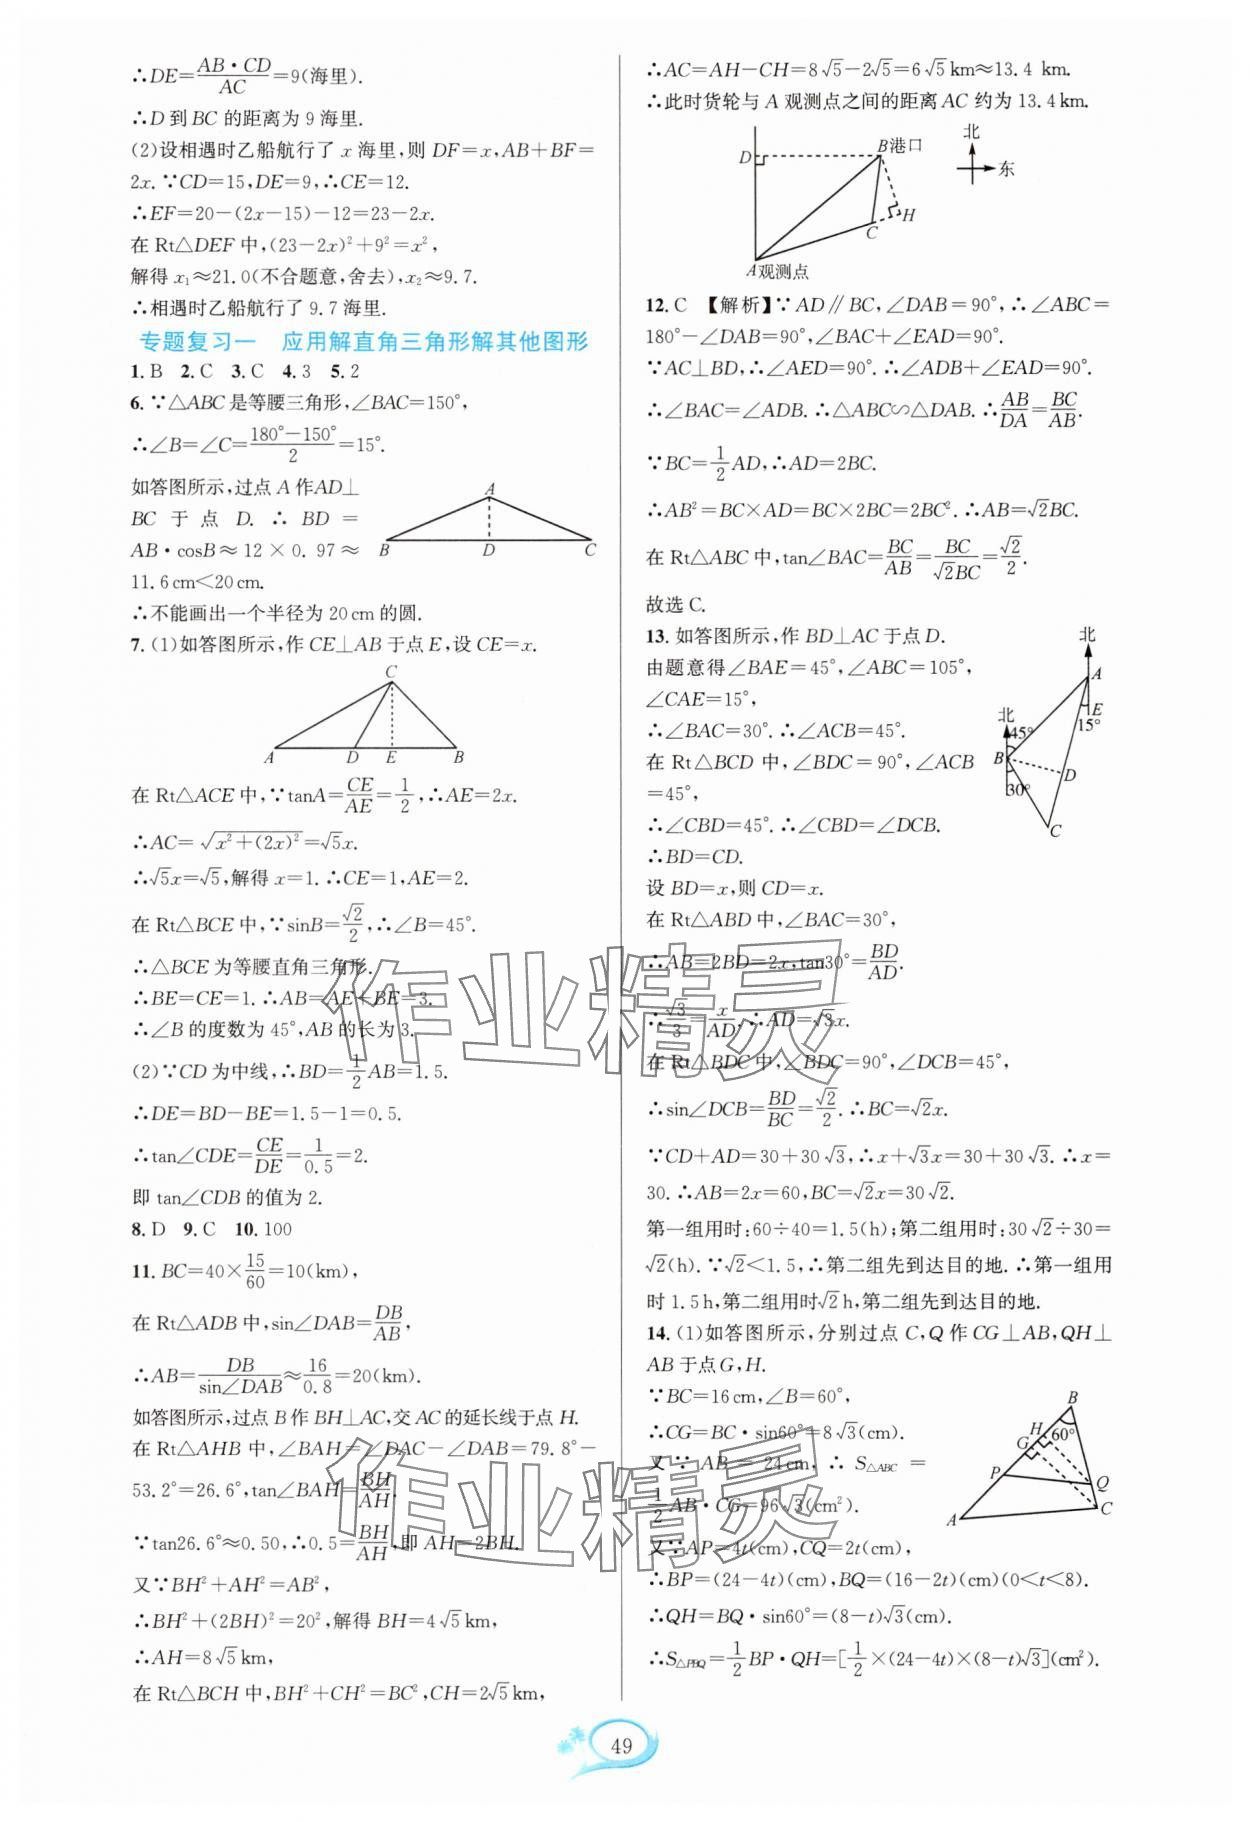 ∴DE=AB·CD/AC=9(海里).
∴D 到 BC 的距离为 9 海里.
(2)设相遇时乙船航行了 x 海里,则 DF=x,AB+BF=
2x.∵CD=15,DE=9,∴CE=12.
∴EF=20-(2x-15)-12=23-2x.
在 Rt△DEF 中,(23-2x)²+9²=x²,
解得 x₁≈21.0(不合题意,舍去),x₂≈9.7.
∴相遇时乙船航行了 9.7 海里.
专题复习一 应用解直角三角形解其他图形
1.B 2.C 3.C 4.3 5.2
6.∵△ABC 是等腰三角形,∠BAC=150°,
∴∠B=∠C=(180°-150°)/2=15°.
如答图所示,过点 A 作AD⊥
BC 于点 D.∴BD=
AB·cosB≈12×0.97≈
11.6cm<20cm.
A
B
D
C
∴不能画出一个半径为 20cm 的圆.
7.(1)如答图所示,作 CE⊥AB 于点 E,设 CE=x.
C
A
D
E
B
在 Rt△ACE 中,∵tanA=CE/AE=1/2,∴AE=2x.
∴AC=√(x²+(2x)²)=√5x.
∴√5x=√5,解得 x=1.∴CE=1,AE=2.
在 Rt△BCE 中,∵sinB=√2/2,∴∠B=45°.
∴△BCE 为等腰直角三角形.
∴BE=CE=1.∴AB=AE+BE=3.
∴∠B 的度数为 45°,AB 的长为 3.
(2)∵CD 为中线,∴BD=1/2AB=1.5.
∴DE=BD-BE=1.5-1=0.5.
∴tan∠CDE=CE/DE=1/0.5=2.
即 tan∠CDB 的值为 2.
8.D 9.C 10.100
11.BC=40×15/60=10(km),
在 Rt△ADB 中,sin∠DAB=DB/AB,
∴AB=DB/sin∠DAB≈16/0.8=20(km).
如答图所示,过点 B 作 BH⊥AC,交 AC 的延长线于点 H.
在 Rt△AHB 中,∠BAH=∠DAC-∠DAB=79.8°-
53.2°=26.6°,tan∠BAH=BH/AH.
∵tan26.6°≈0.50,∴0.5=BH/AH,即 AH=2BH.
又∵BH²+AH²=AB²,
∴BH²+(2BH)²=20²,解得 BH=4√5km,
∴AH=8√5km,
在 Rt△BCH 中,BH²+CH²=BC²,CH=2√5km,
∴AC=AH-CH=8√5-2√5=6√5km≈13.4 km.
∴此时货轮与 A 观测点之间的距离 AC 约为 13.4km.
D
B港口
北
东
H
C
A观测点
12.C 【解析】∵AD∥BC,∠DAB=90°,∴∠ABC=
180°-∠DAB=90°,∠BAC+∠EAD=90°.
∵AC⊥BD,∴∠AED=90°.∴∠ADB+∠EAD=90°.
∴∠BAC=∠ADB.∴△ABC∽△DAB.∴AB/DA=BC/AB.
∵BC=1/2AD,∴AD=2BC.
∴AB²=BC×AD=BC×2BC=2BC².∴AB=√2BC.
在 Rt△ABC 中,tan∠BAC=BC/AB=BC/√2BC=√2/2.
故选 C.
13.如答图所示,作 BD⊥AC 于点 D.
由题意得∠BAE=45°,∠ABC=105°,
∠CAE=15°,
∴∠BAC=30°.∴∠ACB=45°.
在 Rt△BCD 中,∠BDC=90°,∠ACB
=45°,
∴∠CBD=45°.∴∠CBD=∠DCB.
∴BD=CD.
设 BD=x,则 CD=x.
北
A
E
15°
北
45°
B
D
30°
C
在 Rt△ABD 中,∠BAC=30°,
∴AB=2BD=2x,tan30°=BD/AD.
∴√3/3=x/AD.∴AD=√3x.
在 Rt△BDC 中,∠BDC=90°,∠DCB=45°,
∴sin∠DCB=BD/BC=√2/2.∴BC=√2x.
∵CD+AD=30+30√3,∴x+√3x=30+30√3.∴x=
30.∴AB=2x=60,BC=√2x=30√2.
第一组用时:60÷40=1.5(h);第二组用时:30√2÷30=
√2(h).∵√2<1.5,∴第二组先到达目的地.∴第一组用
时 1.5h,第二组用时√2h,第二组先到达目的地.
14.(1)如答图所示,分别过点 C,Q 作 CG⊥AB,QH⊥
AB 于点 G,H.
∵BC=16cm,∠B=60°,
∴CG=BC·sin60°=8√3(cm).
又∵AB=24cm,∴S△ABC=
1/2AB·CG=96√3(cm²).
又∵AP=4t(cm),CQ=2t(cm),
B
H
60°
G
P
Q
A
C
∴BP=(24-4t)(cm),BQ=(16-2t)(cm)(0<t<8).
∴QH=BQ·sin60°=(8-t)√3(cm).
∴S△PBQ=1/2BP·QH=[1/2×(24-4t)×(8-t)√3](cm²).
作业精灵
作业精灵
49